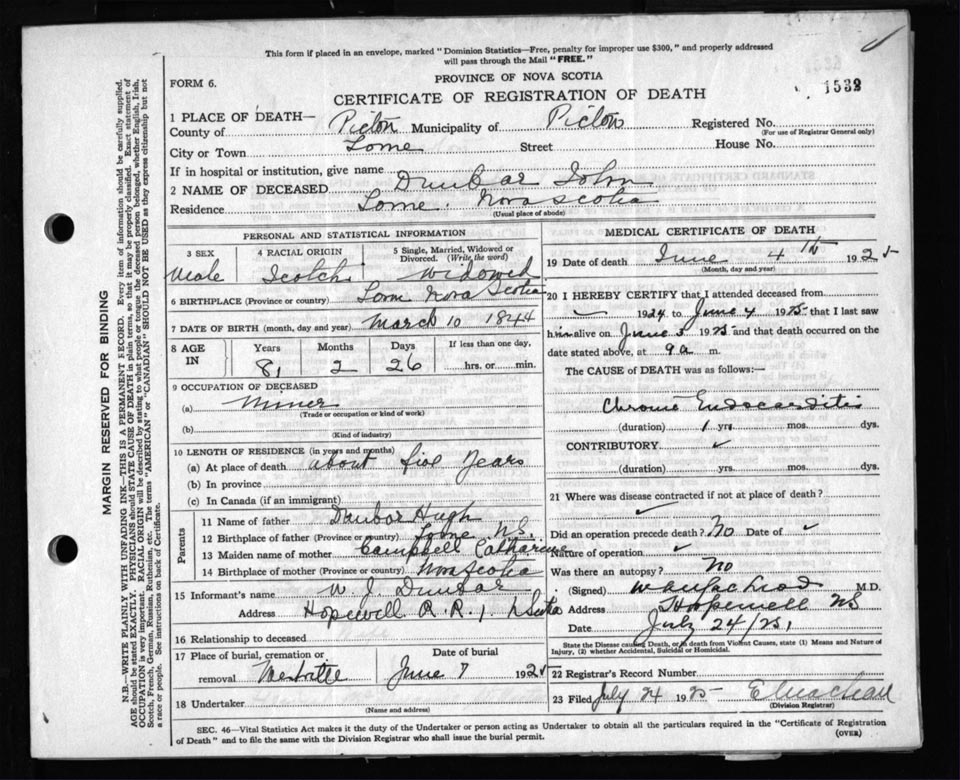 This form if placed in an envelope, marked "Dominion Statistics—Free, penalty for improper use $300," and properly addressed
will pass through the Mail "FREE."
PROVINCE OF NOVA SCOTIA
FORM 6.
1532
CERTIFICATE OF REGISTRATION OF DEATH
1 PLACE OF DEATH—
County of Pictou Municipality of Pictou Registered No.
(For use of Registrar General only)
City or Town Lorne Street House No.
If in hospital or institution, give name
2 NAME OF DECEASED Dunbar John
Residence Lorne. Nova Scotia
(Usual place of abode)
PERSONAL AND STATISTICAL INFORMATION
3 SEX 4 RACIAL ORIGIN 5 Single, Married, Widowed or Divorced. (Write the word)
Male Scotch Widowed
6 BIRTHPLACE (Province or country) Lorn Nova Scotia
7 DATE OF BIRTH (month, day and year) March 10 1844
8 AGE IN Years Months Days If less than one day,
81 2 26 hrs. or min.
9 OCCUPATION OF DECEASED
(a) Miner
(Trade or occupation or kind of work)
(b)
(Kind of industry)
10 LENGTH OF RESIDENCE (in years and months)
(a) At place of death about five years
(b) In province
(c) In Canada (if an immigrant)
Parents
11 Name of father Dunbar Hugh
12 Birthplace of father (Province or country) Lorne NS.
13 Maiden name of mother Campbell Catharine
14 Birthplace of mother (Province or country) Nova Scotia
15 Informant's name W. J. Dunbar
Address Hopewell R.R.1 N Scotia
16 Relationship to deceased
17 Place of burial, cremation or removal Date of burial
June 7 1925
18 Undertaker
(Name and address)
MEDICAL CERTIFICATE OF DEATH
19 Date of death June 4th 1925
(Month, day and year)
20 I HEREBY CERTIFY that I attended deceased from
1924 to June 4 1925 that I last saw
him alive on June 3 1925 and that death occurred on the
date stated above, at 9 a m.
The CAUSE of DEATH was as follows:—
Chronic Endocarditis
(duration) 1 yrs. mos. dys.
CONTRIBUTORY ✓
(duration) yrs. mos. dys.
21 Where was disease contracted if not at place of death?
✓
Did an operation precede death? No Date of ✓
Nature of operation ✓
Was there an autopsy? No
(Signed) M.D.
Address Hopewell NS
Date July 24/25
State the Disease causing Death, or in death from Violent Causes, state (1) Means and Nature of
Injury, (2) whether Accidental, Suicidal or Homicidal.
22 Registrar's Record Number
23 Filed July 24 1925
(Division Registrar)
SEC. 46—Vital Statistics Act makes it the duty of the Undertaker or person acting as Undertaker to obtain all the particulars required in the "Certificate of Registration
of Death" and to file the same with the Division Registrar who shall issue the burial permit.
(OVER)
MARGIN RESERVED FOR BINDING
N.B.—WRITE PLAINLY WITH UNFADING INK—THIS IS A PERMANENT RECORD. Every item of information should be carefully supplied.
AGE should be stated EXACTLY. PHYSICIANS should STATE CAUSE OF DEATH in plain terms, so that it may be properly classified. Exact statement of
OCCUPATION is very important. RACIAL ORIGIN will be described by stating to what people or tongue the deceased person belonged, whether English, Irish,
Scotch, French, German, Russian, Ruthenian, etc. The terms "AMERICAN" or "CANADIAN" SHOULD NOT BE USED as they express citizenship but not
a race or people. See instructions on back of Certificate.